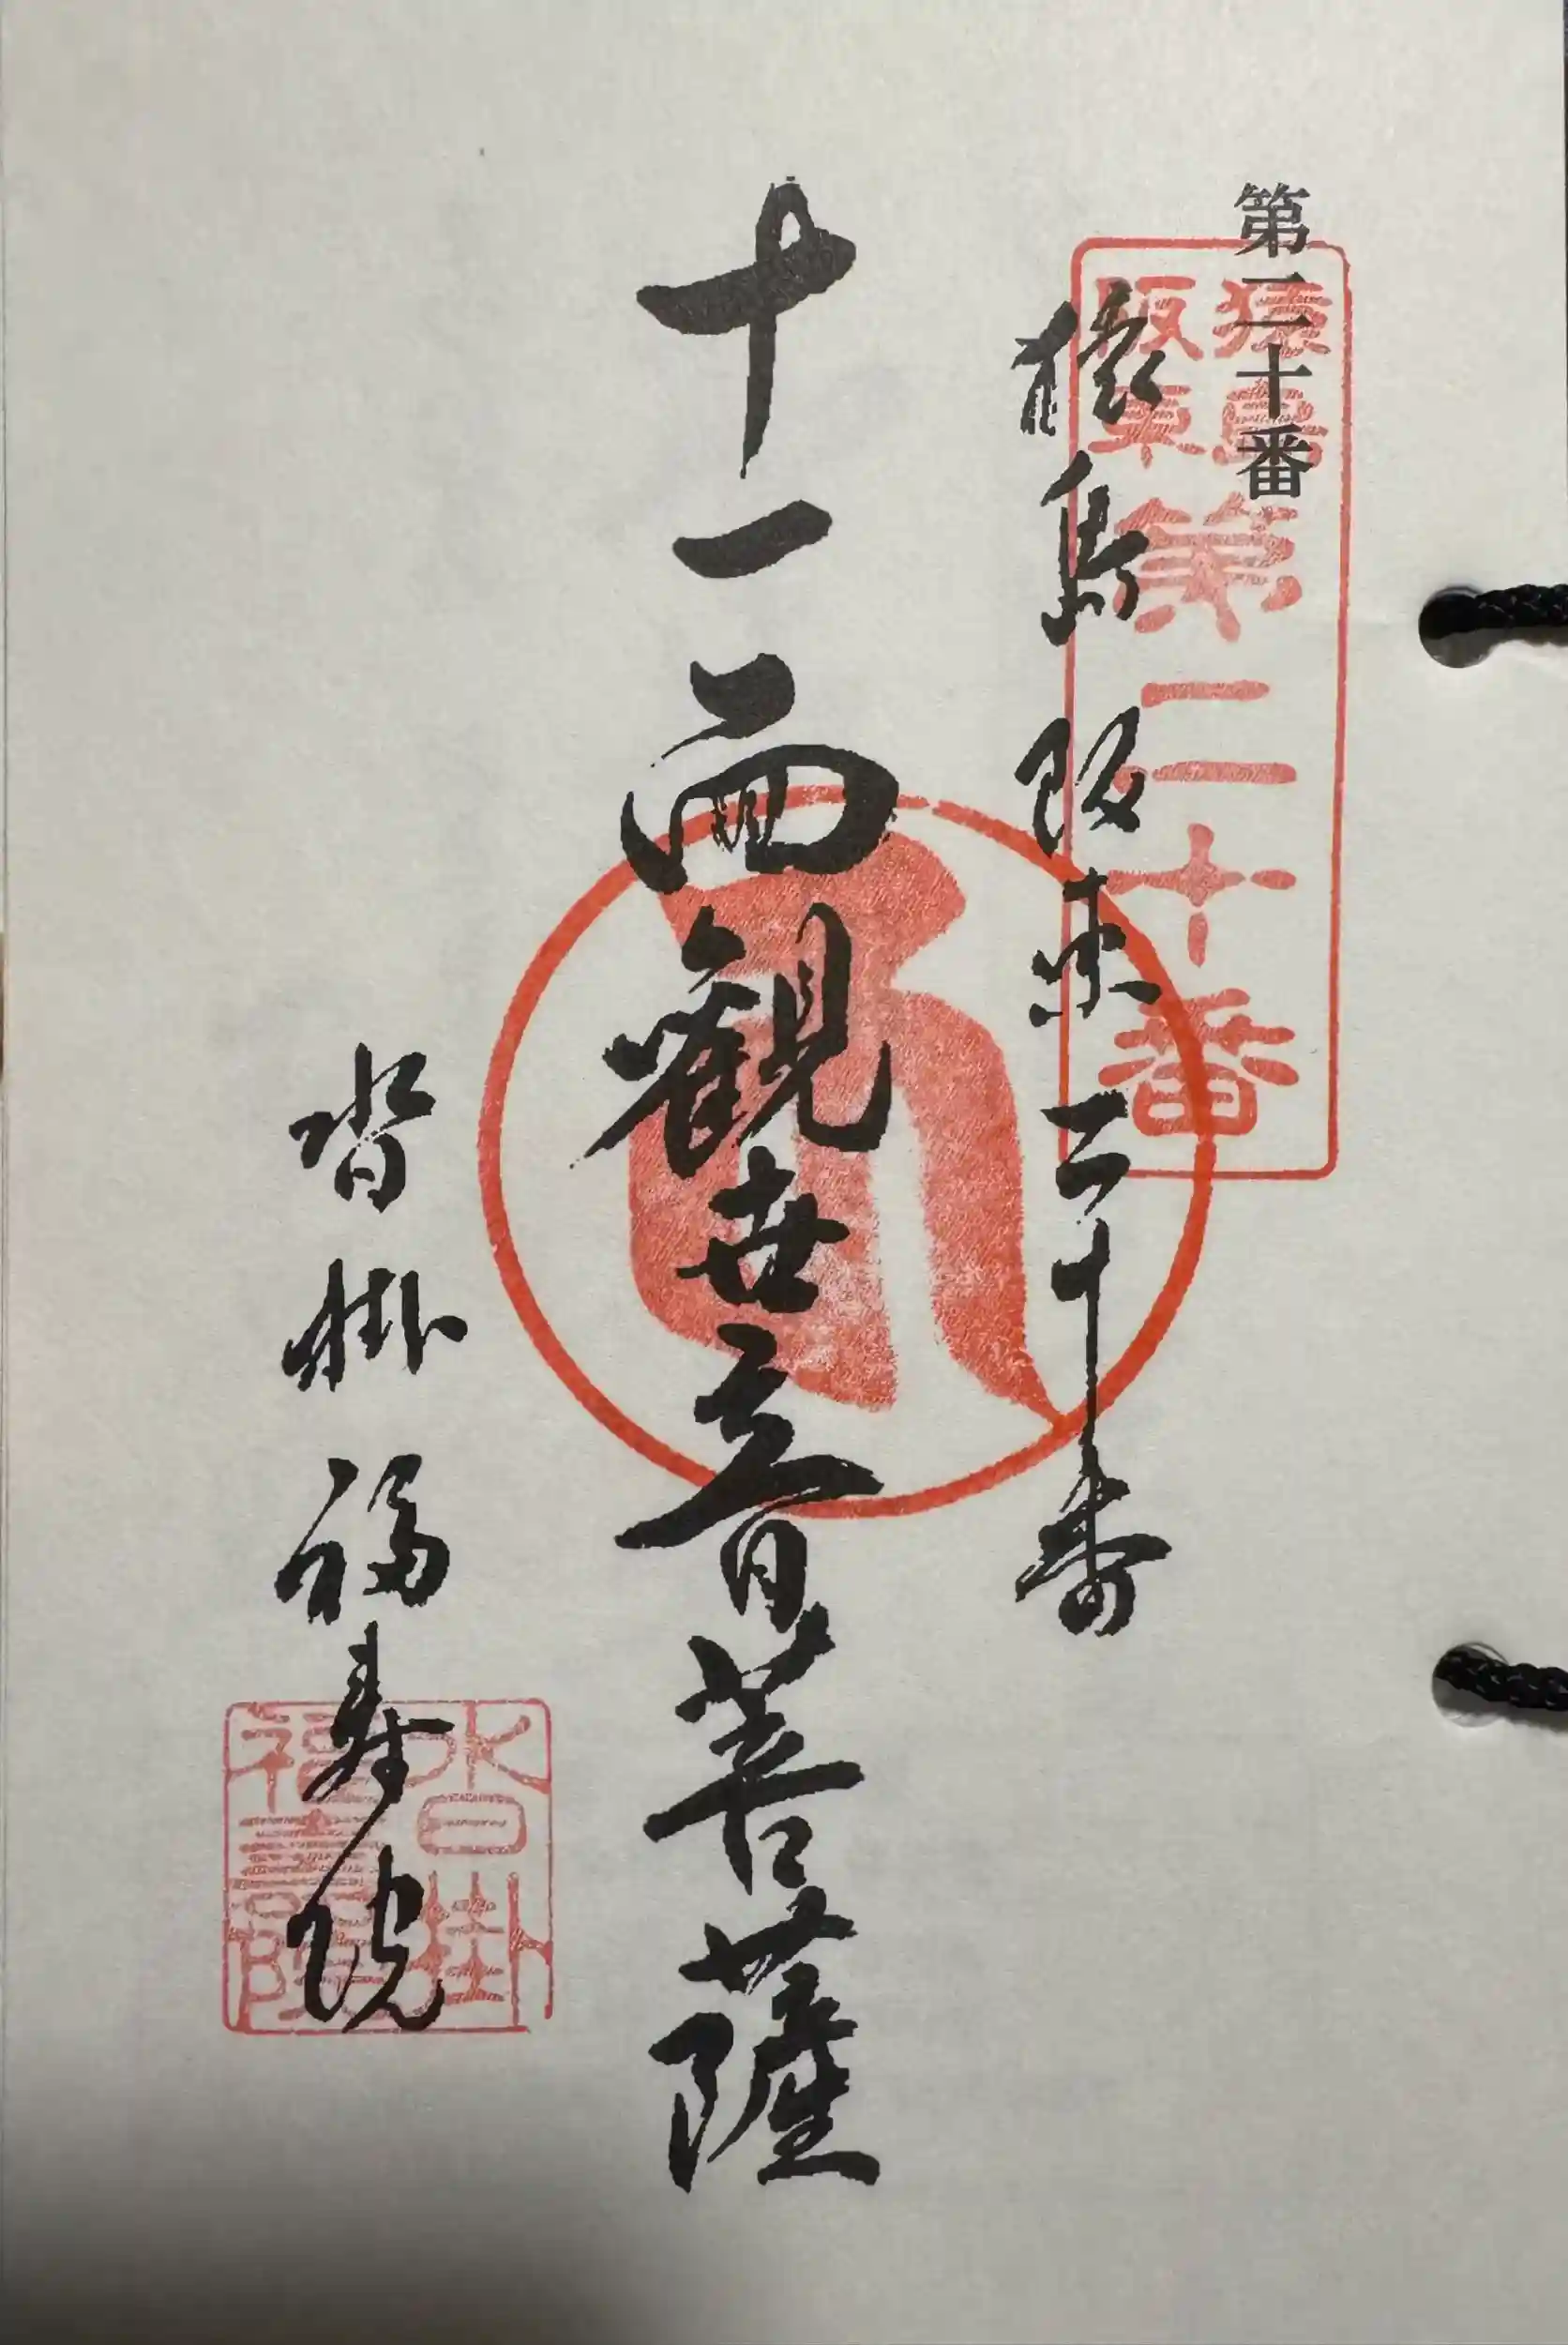 第二十番
猿島
阪東
第二十番
猿島阪東二十番
十一面観世音菩薩
沓掛福寿院
沓掛
福壽院